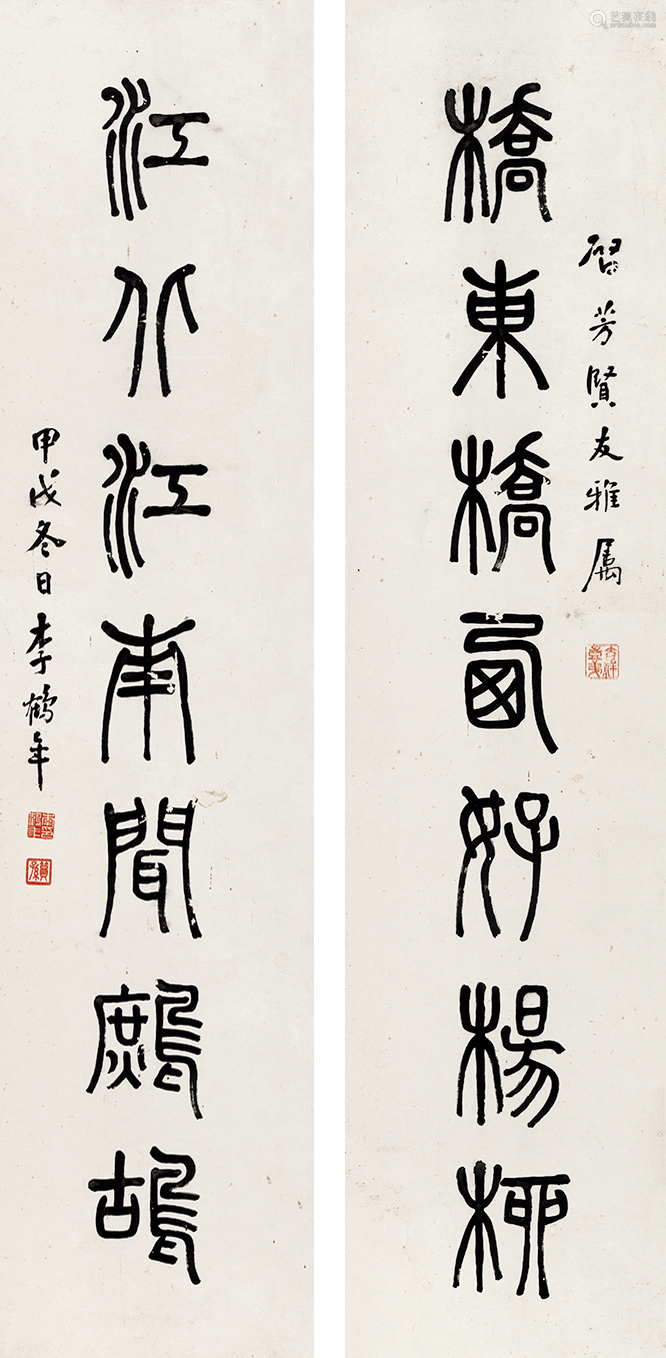 橋東橋西好楊柳
啓芳賢友雅屬
江北江南聞鷓鴣
甲戌冬日李鶴年
艺狐在线